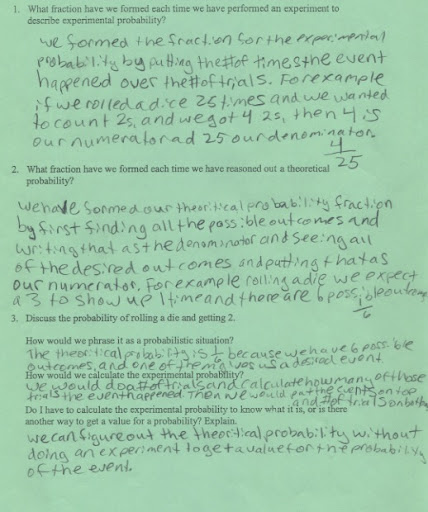 1. What fraction have we formed each time we have performed an experiment to
describe experimental probability?
we formed the fraction for the experimental
probability by putting the # of times the event
happened over the # of trials. For example
if we rolled a dice 25 times and we wanted
to count 2s, and we got 4 2s, then 4 is
our numerator ad 25 our denominator.
4
25
2. What fraction have we formed each time we have reasoned out a theoretical
probability?
we have formed our theoritical probability fraction
by first finding all the possible outcomes and
writing that as the denominator and seeing all
of the desired outcomes and putting that as
our numerator. For example rolling a die we expect
a 3 to show up 1 time and there are 6 possible outcomes
1
6
3. Discuss the probability of rolling a die and getting 2.
How would we phrase it as a probabilistic situation?
The theoritical probability is 1/6 because we have 6 possible
outcomes, and one of them gives us a desired event
How would we calculate the experimental probability?
we would do a # of trials and calculate how many of those
trials the event happened. Then we would put the events on top
and # of trials on bottom
Do I have to calculate the experimental probability to know what it is, or is there
another way to get a value for a probability? Explain.
we can figure out the theoritical probability without
doing an experiment to get a value for the probability
of the event.